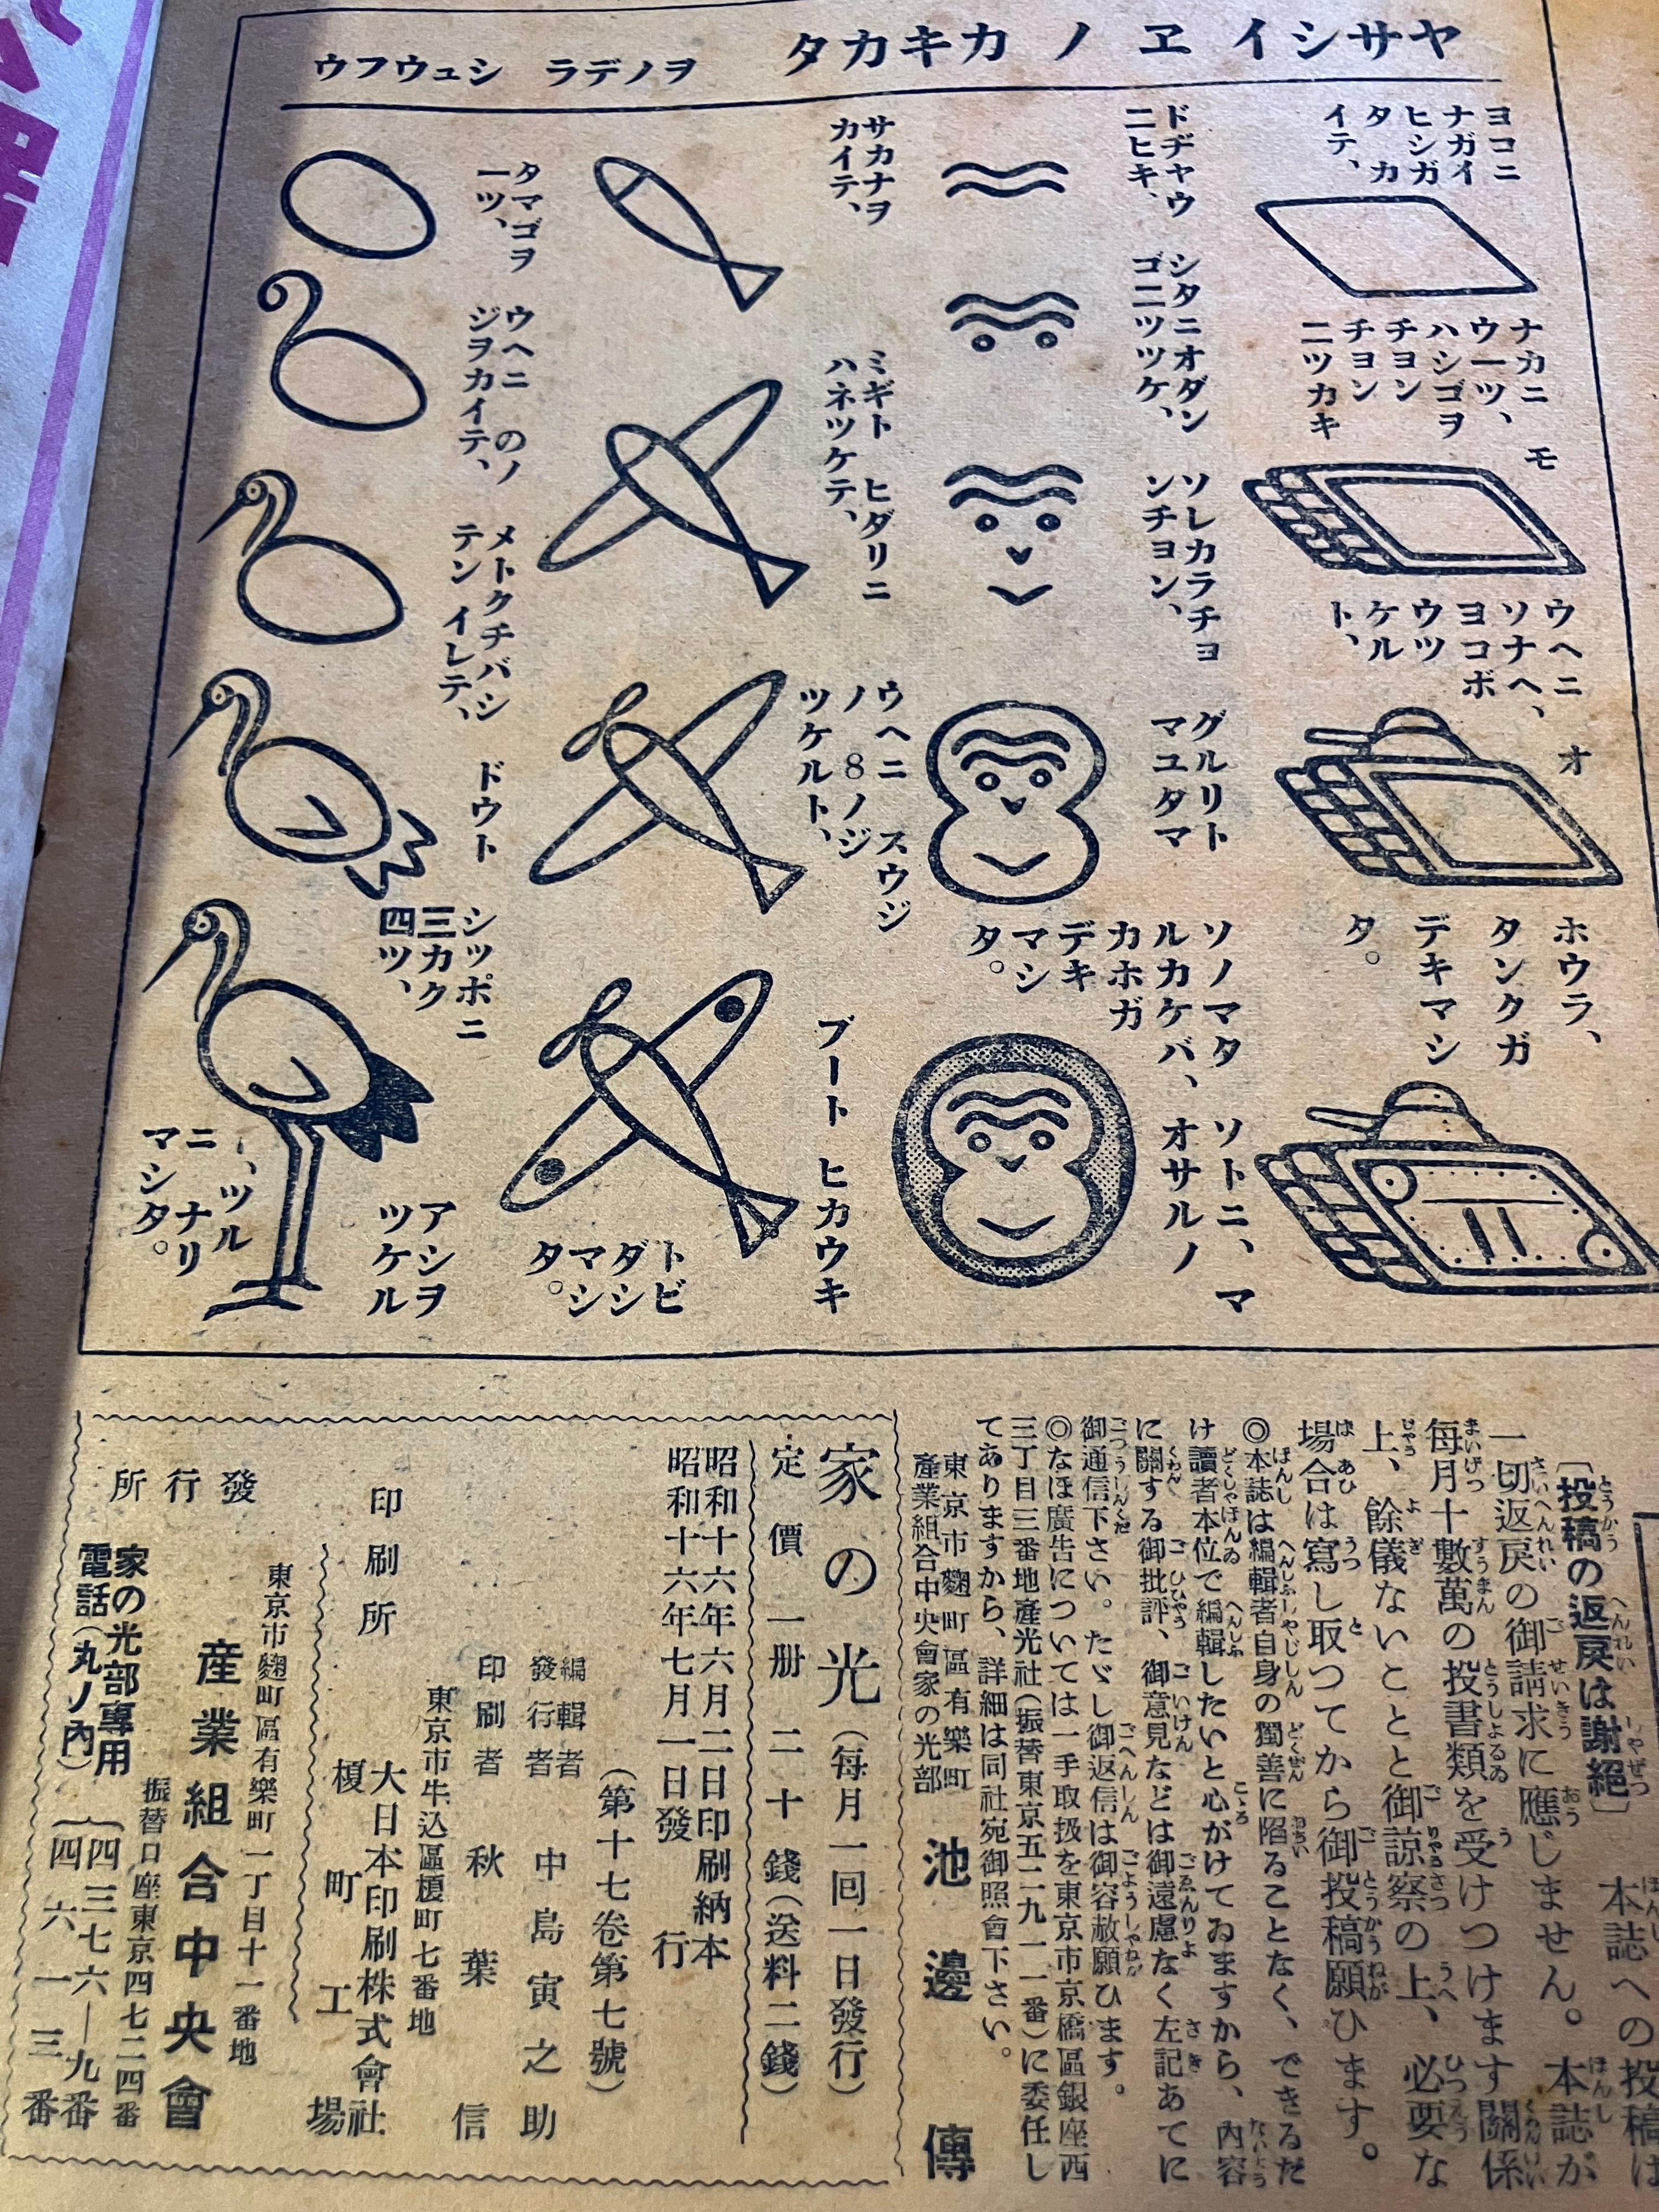 ヤサシイ ヱ ノ カキカタ
ヲノデラ シュウフウ
ヨコニ
ナガイ
ヒシガ
タ カ
イテ、
ナカニ モ
ウ一ツ、
ハシゴヲ
チヨン
チヨン
ニツカキ
ウヘニ オ
ソナヘ、
ヨコボ
ウツ
ケル
ト、
ホウラ、
タンクガ
デキマシ
タ。
ドヂヤウ
二ヒキ、
シタニオダン
ゴ二ツツケ、
ソレカラチヨ
ンチヨン、
グルリト
マユタマ
ソノマタ ソトニ、マ
ルカケバ、オサルノ
カホガ
デキ
マシ
タ。
サカナヲ
カイテ、
ミギト ヒダリニ
ハネツケテ、
ウヘニ スウジ
ノ 8ノジ
ツケルト、
ブート ヒカウキ
トビ
ダシ
マシ
タ。
タマゴヲ
一ツ、
ウヘニ のノ
ジヲカイテ、
メトクチバシ
テン イレテ、
ドウト
シツポニ
三カク
四ツ、
アシヲ
ツケル
ト、ツル
ニ ナリ
マシタ。
〔投稿の返戻は謝絶〕 本誌への投稿は
一切返戻の御請求に應じません。本誌が
毎月十數萬の投書類を受けつけます關係
上、餘儀ないことと御諒察の上、必要な
場合は寫し取つてから御投稿願ひます。
◎本誌は編輯者自身の獨善に陷ることなく、できるだ
け讀者本位で編輯したいと心がけてゐますから、内容
に關する御批評、御意見などは御遠慮なく左記あてに
御通信下さい。たゞし御返信は御容赦願ひます。
◎なほ廣告については一手取扱を東京市京橋區銀座西
三丁目三番地產光社(振替東京五二九一一番)に委任し
てありますから、詳細は同社宛御照會下さい。
東京市麴町區有樂町
產業組合中央會家の光部
池邊 傳
家の光(毎月一回一日發行)
定價一册 二十錢(送料二錢)
昭和十六年六月二日印刷納本
昭和十六年七月一日發行
(第十七卷第七號)
編輯者
發行者 中島寅之助
印刷者 秋葉信
東京市牛込區榎町七番地
印刷所 大日本印刷株式會社
榎町工場
東京市麴町區有樂町一丁目十一番地
發行所 産業組合中央會
振替口座東京四七二四番
家の光部專用
電話(丸ノ内)
四三七六—九番
四六一三番